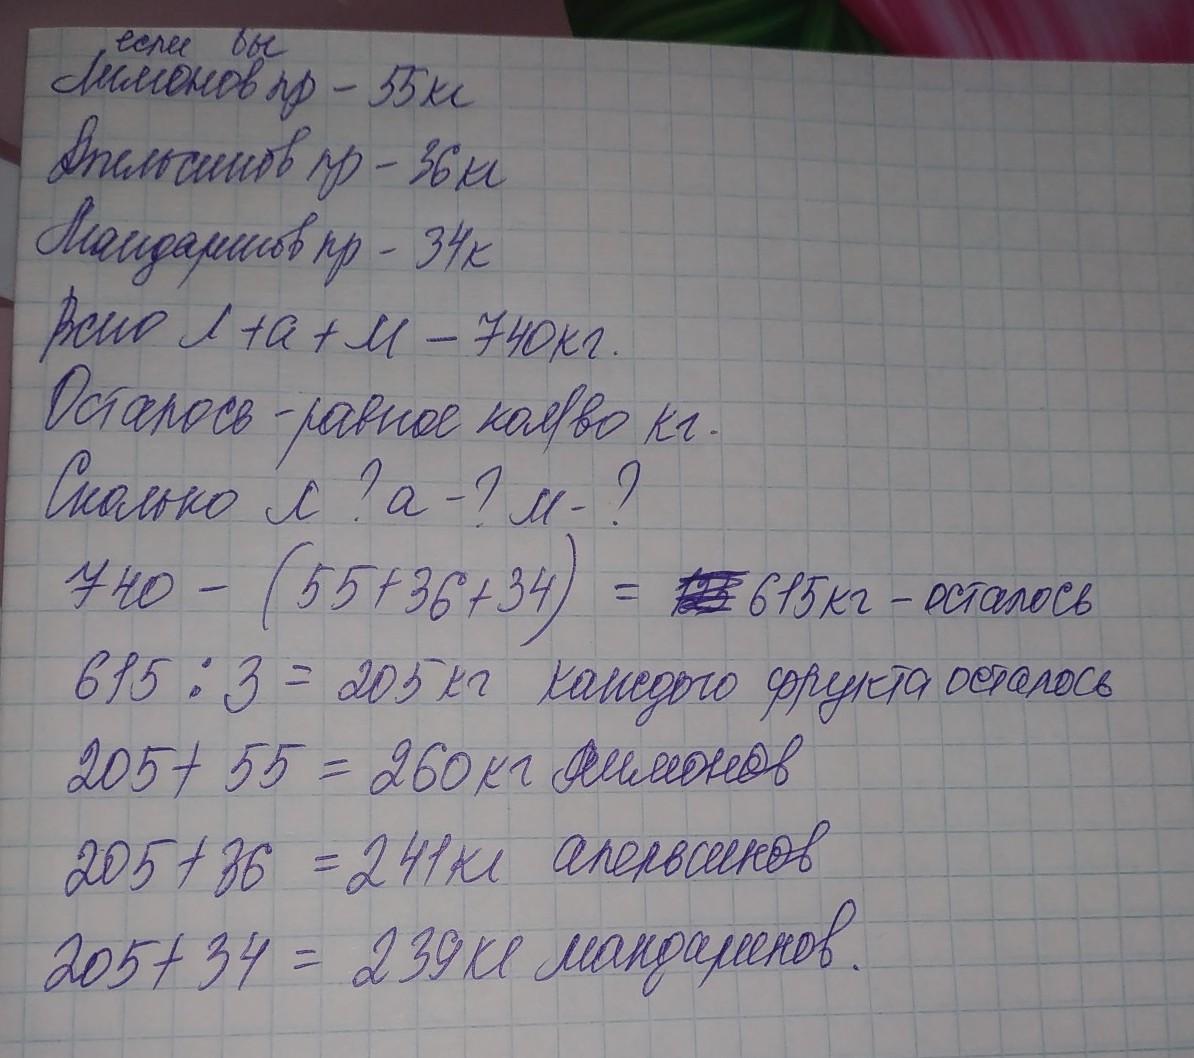 если бы
Лимонов пр - 55кг
Апельсинов пр - 36кг
Мандаринов пр - 34к
Всего л + а + м - 740кг.
Осталось - равное кол/во кг.
Сколько л ? а - ? м - ?
740 - (55+36+34) = 615кг - осталось
615 : 3 = 205кг каждого фрукта осталось
205 + 55 = 260кг лимонов
205 + 36 = 241кг апельсинов
205 + 34 = 239кг мандаринов.